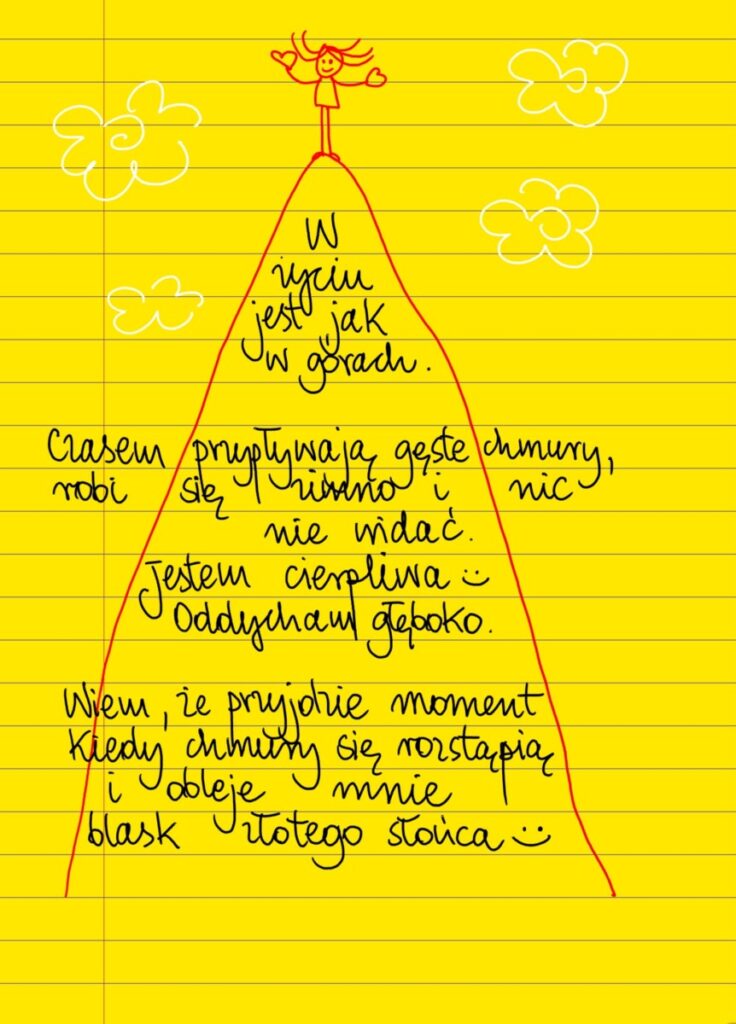 W
życiu
jest jak
w górach.
Czasem przypływają gęste chmury,
robi się zimno i nic
nie widać.
Jestem cierpliwa :)
Oddycham głęboko.
Wiem, że przyjdzie moment
Kiedy chmury się rozstąpią
i obleje mnie
blask złotego słońca :)